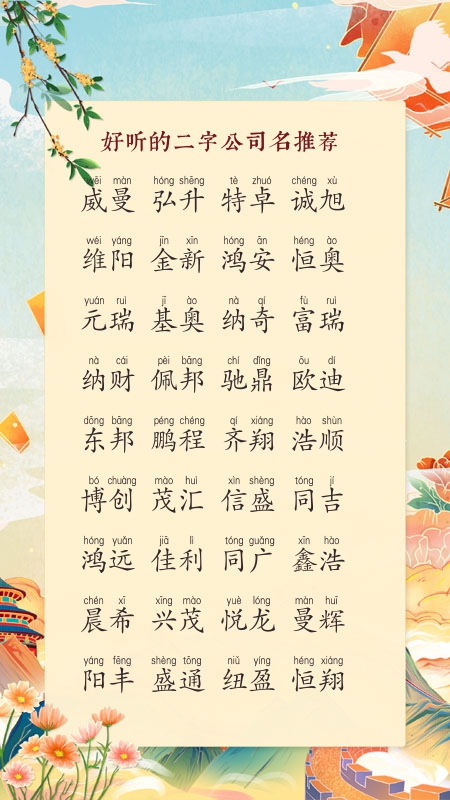 好听的二字公司名推荐
wēi màn hóng shēng tè zhuó chéng xù
威曼 弘升 特卓 诚旭
wéi yáng jīn xīn hóng ān héng ào
维阳 金新 鸿安 恒奥
yuán ruì jī ào nà qí fù ruì
元瑞 基奥 纳奇 富瑞
nà cái pèi bāng chí dǐng ōu dí
纳财 佩邦 驰鼎 欧迪
dōng bāng péng chéng qí xiáng hào shùn
东邦 鹏程 齐翔 浩顺
bó chuàng mào huì xìn shèng tóng jí
博创 茂汇 信盛 同吉
hóng yuǎn jiā lì tóng guǎng xīn hào
鸿远 佳利 同广 鑫浩
chén xī xīng mào yuè lóng màn huī
晨希 兴茂 悦龙 曼辉
yáng fēng shèng tōng niǔ yíng héng xiáng
阳丰 盛通 纽盈 恒翔